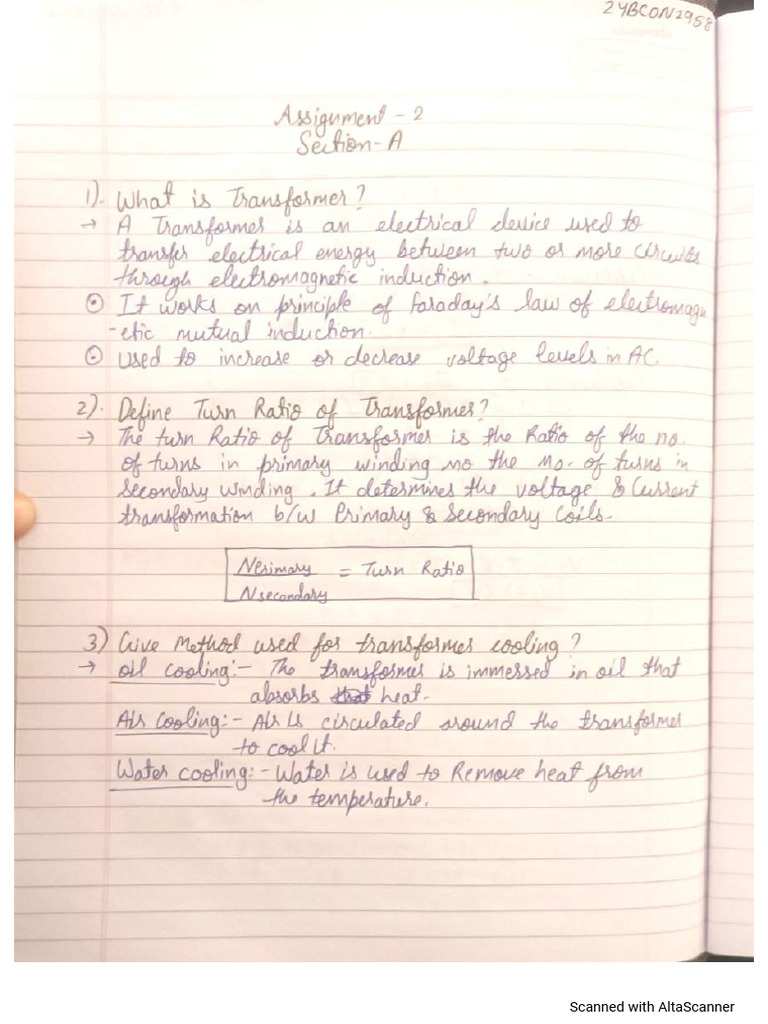 24BCON2958
Assignment - 2
Section-A
1). What is Transformer?
→ A Transformer is an electrical device used to
transfer electrical energy between two or more circuits
through electromagnetic induction.
It works on principle of faraday's law of electromagn
-etic mutual induction.
Used to increase or decrease voltage levels in AC.
2). Define Turn Ratio of Transformer?
→ The turn Ratio of Transformer is the Ratio of the no.
of turns in primary winding no the no. of turns in
secondary winding. It determines the voltage & Current
transformation b/w Primary & Secondary Coils.
NPrimary
= Turn Ratio
Nsecondary
3) Give Method used for transformer cooling?
→ oil cooling:- The transformer is immersed in oil that
absorbs heat.
Air Cooling:- Air is circulated around the transformer
to cool it.
Water cooling:- Water is used to Remove heat from
the temperature.
Scanned with AltaScanner